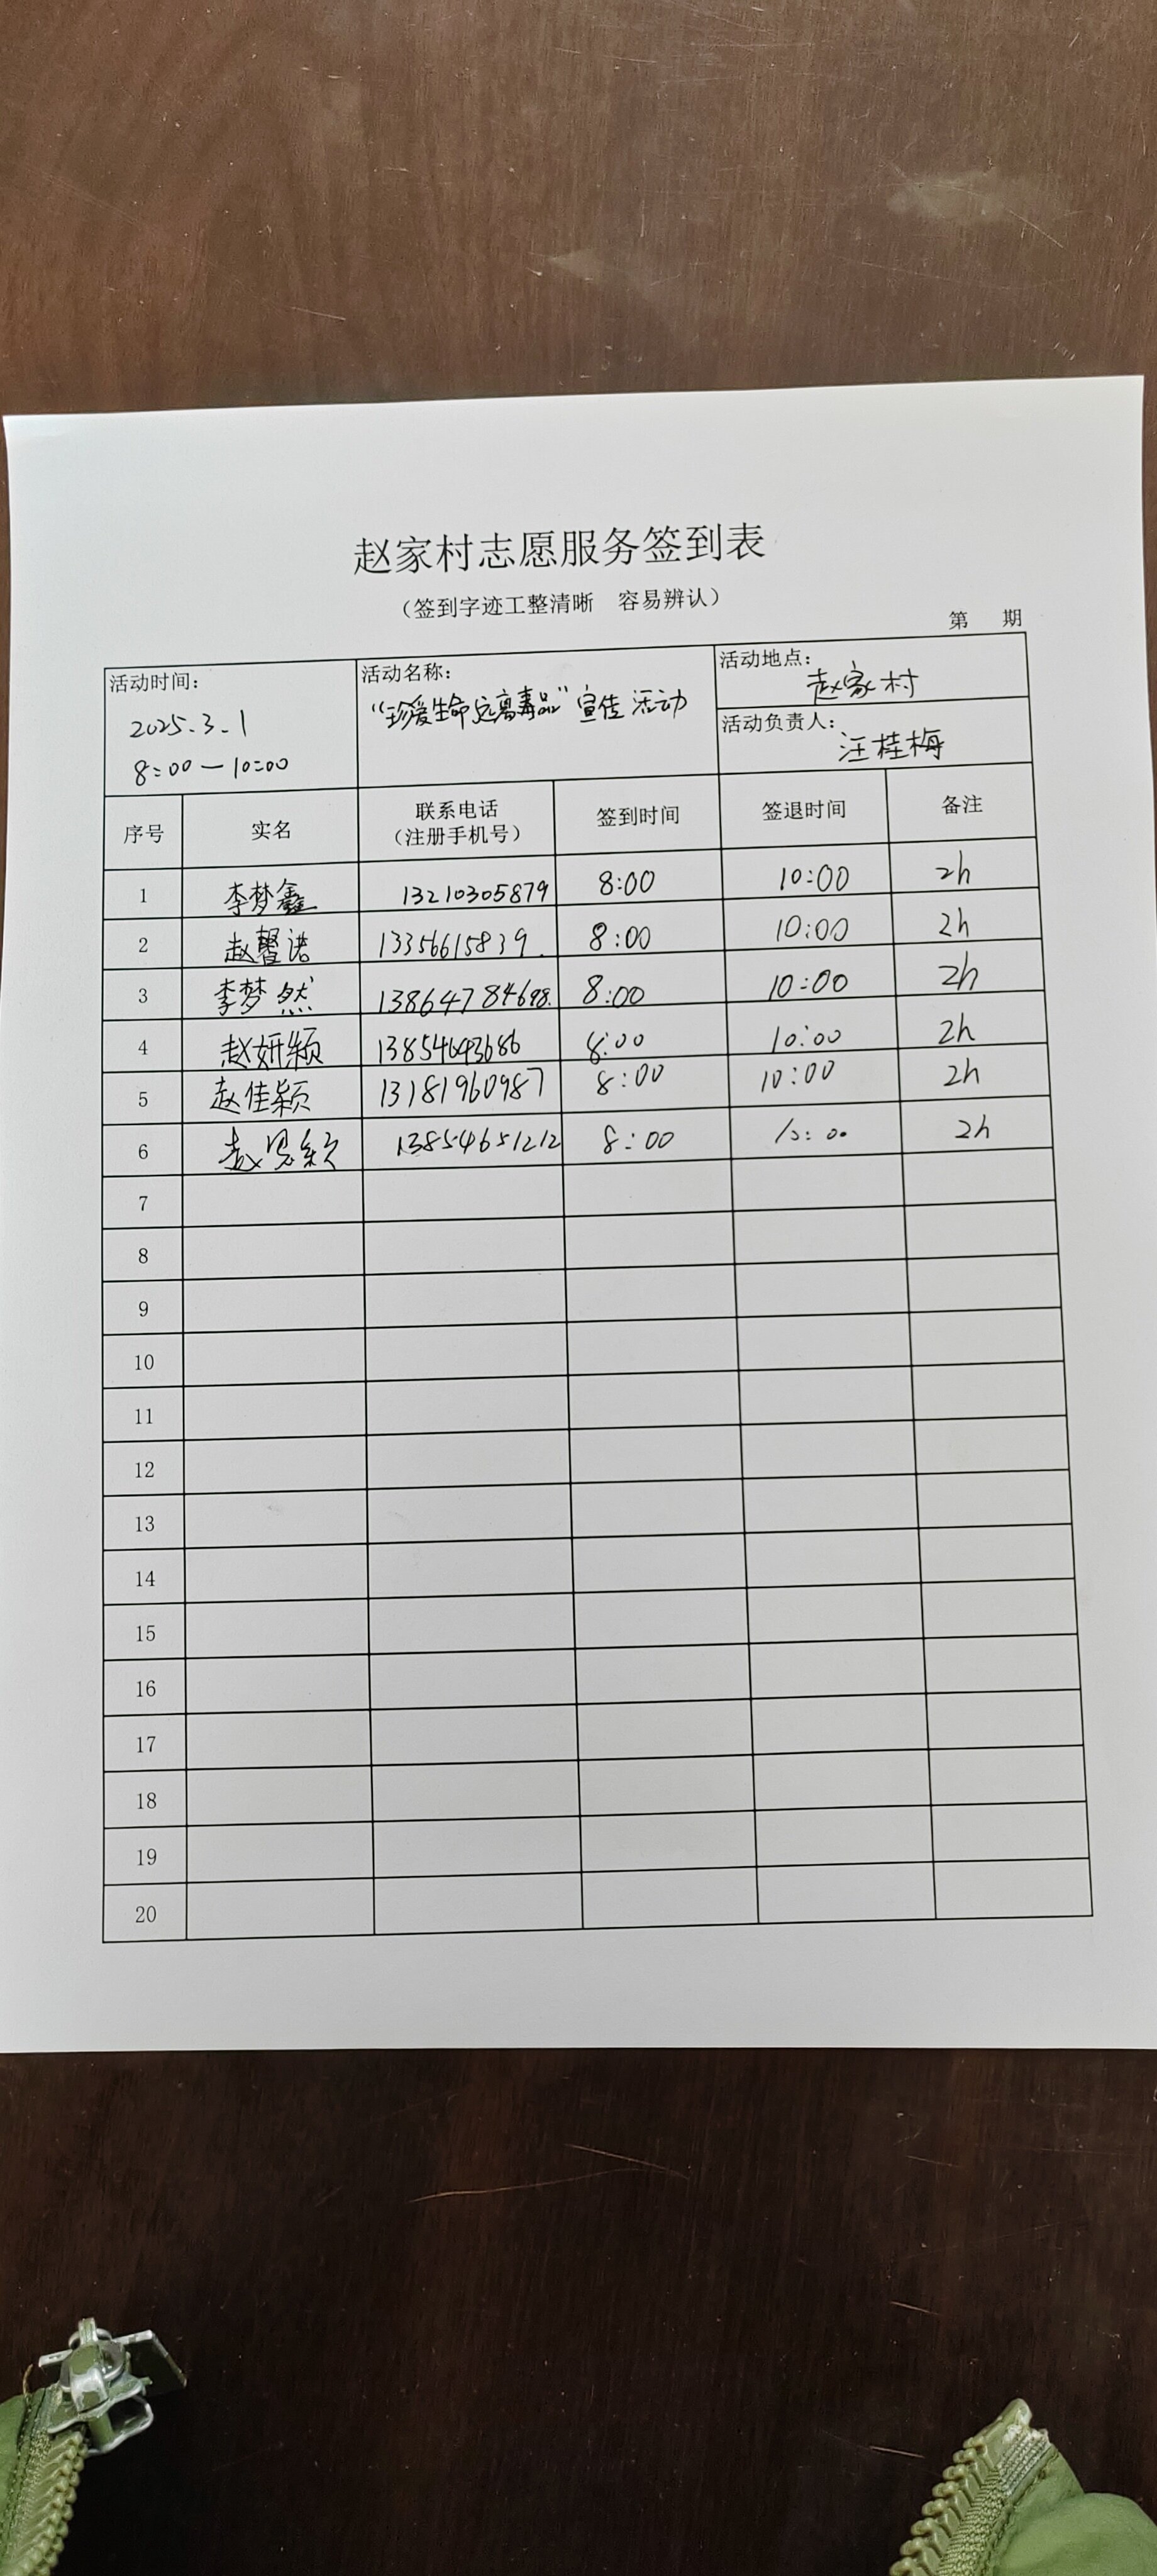 赵家村志愿服务签到表
（签到字迹工整清晰 容易辨认）
第 期
活动时间：
2025.3.1
8:00—10:00
活动名称：
“珍爱生命远离毒品”宣传活动
活动地点：
赵家村
活动负责人：
汪桂梅
序号 实名 联系电话（注册手机号） 签到时间 签退时间 备注
1 李梦鑫 13210305879 8:00 10:00 2h
2 赵馨诺 13356615839. 8:00 10:00 2h
3 李梦然 13864784698. 8:00 10:00 2h
4 赵妍颖 13854643686 8:00 10:00 2h
5 赵佳颖 13181960987 8:00 10:00 2h
6 13854651212 8:00 10:00 2h
7
8
9
10
11
12
13
14
15
16
17
18
19
20